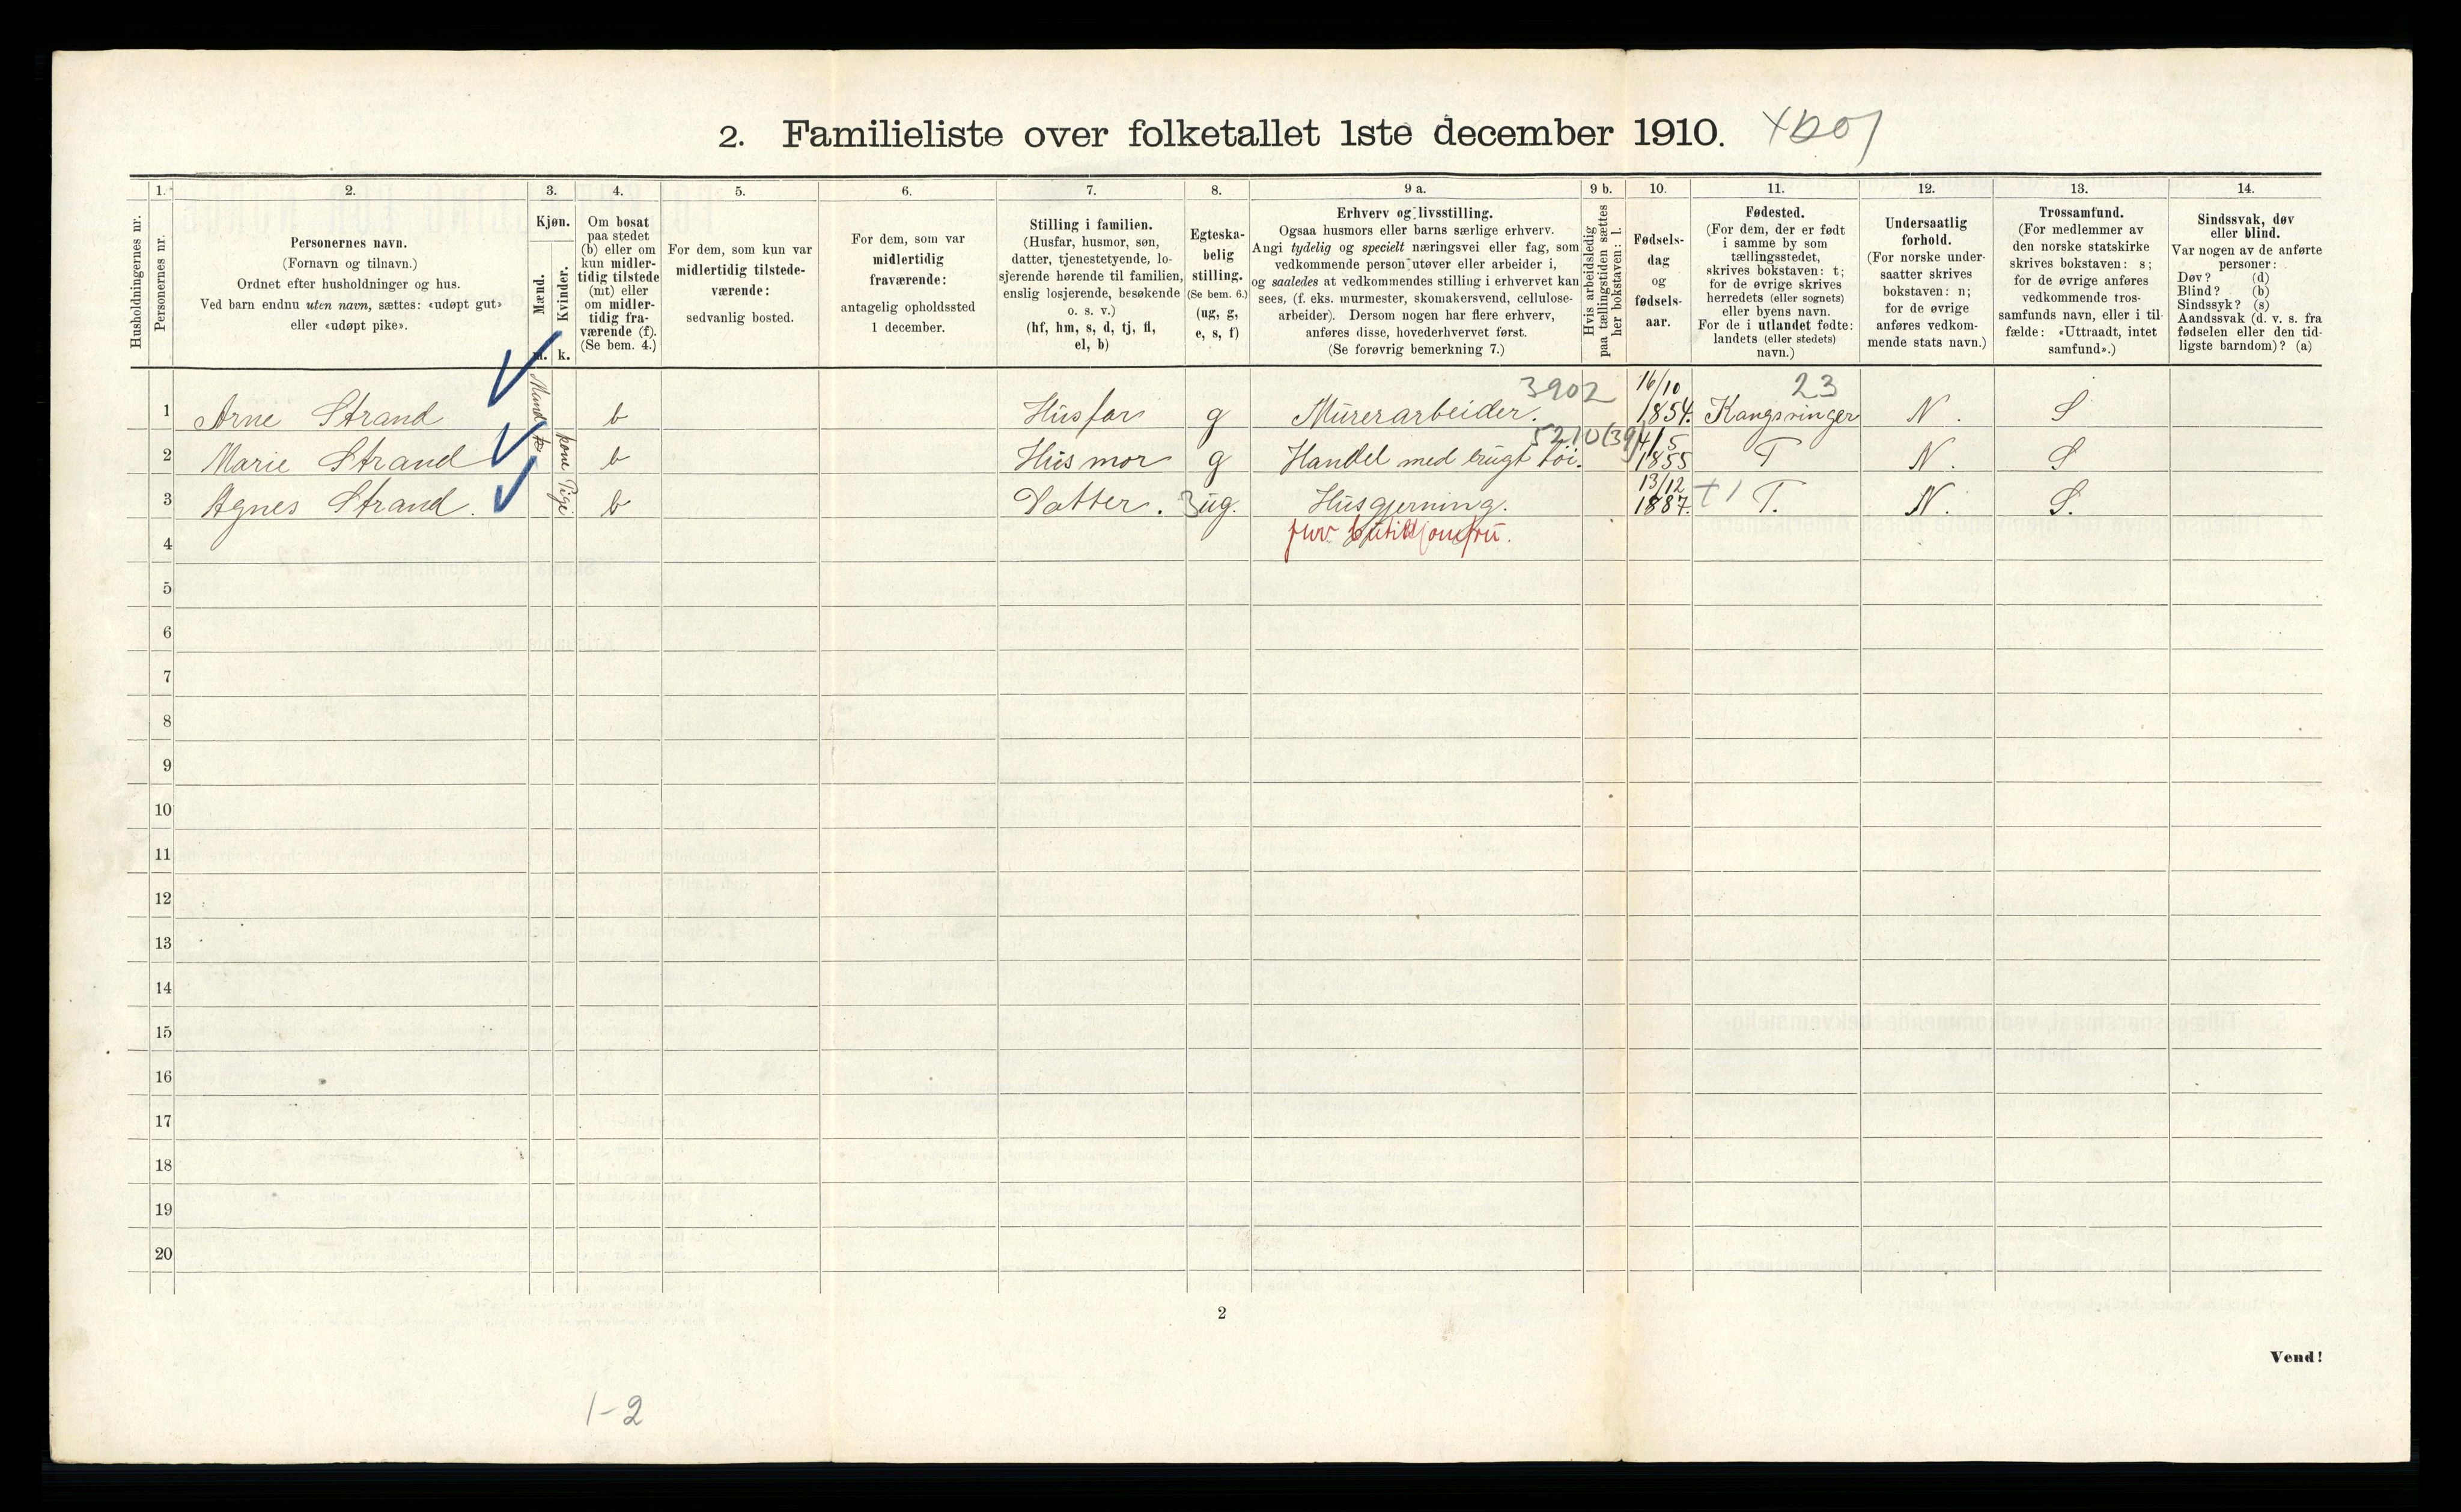 2. Familieliste over folketallet 1ste december 1910.
Husholdningernes nr.
1.
Personernes nr.
2.
Personernes navn.
(Fornavn og tilnavn.)
Ordnet efter husholdninger og hus.
Ved barn endnu uten navn, sættes: «udøpt gut»
eller «udøpt pike».
3.
Kjøn.
Mænd.
Kvinder.
m. k.
4.
Om bosat
paa stedet
(b) eller om
kun midler-
tidig tilstede
(mt) eller
om midler-
tidig fra-
værende (f).
(Se bem. 4.)
5.
For dem, som kun var
midlertidig tilstede-
værende:
sedvanlig bosted.
6.
For dem, som var
midlertidig
fraværende:
antagelig opholdssted
1 december.
7.
Stilling i familien.
(Husfar, husmor, søn,
datter, tjenestetyende, lo-
sjerende hørende til familien,
enslig losjerende, besøkende
o. s. v.)
(hf, hm, s, d, tj, fl,
el, b)
8.
Egteska-
belig
stilling.
(Se bem. 6.)
(ug, g,
e, s, f)
9 a.
Erhverv og livsstilling.
Ogsaa husmors eller barns særlige erhverv.
Angi tydelig og specielt næringsvei eller fag, som
vedkommende person utøver eller arbeider i,
og saaledes at vedkommendes stilling i erhvervet kan
sees, (f. eks. murmester, skomakersvend, cellulose-
arbeider). Dersom nogen har flere erhverv,
anføres disse, hovederhvervet først.
(Se forøvrig bemerkning 7.)
9 b.
Hvis arbeidsledig
paa tællingstiden sættes
her bokstaven: l.
10.
Fødsels-
dag
og
fødsels-
aar.
11.
Fødested.
(For dem, der er født
i samme by som
tællingsstedet,
skrives bokstaven: t;
for de øvrige skrives
herredets (eller sognets)
eller byens navn.
For de i utlandet fødte:
landets (eller stedets)
navn.)
12.
Undersaatlig
forhold.
(For norske under-
saatter skrives
bokstaven: n;
for de øvrige
anføres vedkom-
mende stats navn.)
13.
Trossamfund.
(For medlemmer av
den norske statskirke
skrives bokstaven: s;
for de øvrige anføres
vedkommende tros-
samfunds navn, eller i til-
fælde: «Uttraadt, intet
samfund».)
14.
Sindssvak, døv
eller blind.
Var nogen av de anførte
personer:
Døv? (d)
Blind? (b)
Sindssyk? (s)
Aandssvak (d. v. s. fra
fødselen eller den tid-
ligste barndom)? (a)
3902 16/10 23
1 Arne Strand Mand b Husfar g Murerarbeider. 1854. Kongsvinger N. S
5210(39) 4/5
2 Marie Strand kone b Husmor g Handel med brugt tøi. 1855 T N. S
13/12
3 Agnes Strand. Pige b Datter. 3 ug. Husgjerning. 1887. +1 T. N. S.
4
5
6
7
8
9
10
11
12
13
14
15
16
17
18
19
20
2
Vend!
1-2